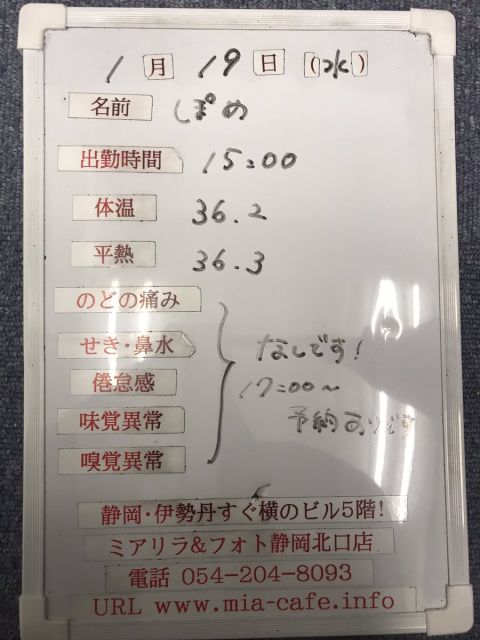 1月19日(水)
名前 しぽめ
出勤時間 15:00
体温 36.2
平熱 36.3
のどの痛み
せき・鼻水 なしです!
倦怠感 17:00~
味覚異常 予約ありです
嗅覚異常
静岡・伊勢丹すぐ横のビル5階!
ミアリラ&フォト静岡北口店
電話 054-204-8093
URL www.mia-cafe.info